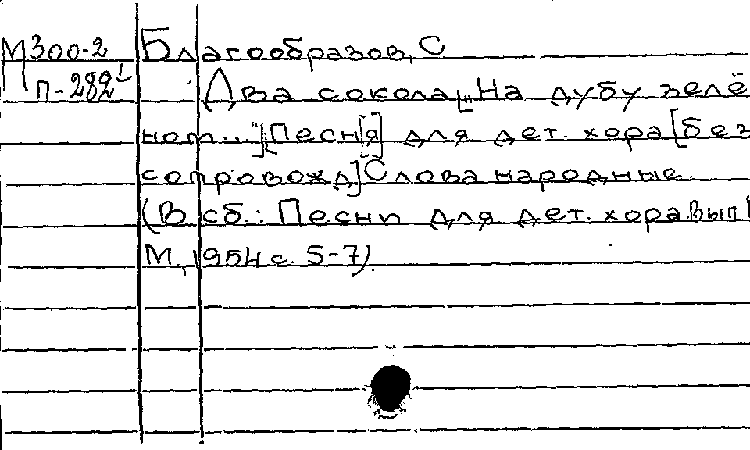 М300-2 Благообразов, С
П-282¹ Два сокола ["На дубу зелё
ном..."] [Песня] для дет. хора [без
сопровожд] Слова народные
(В сб.: Песни для дет. хора. Вып 1
М., 1954 с. 5-7)